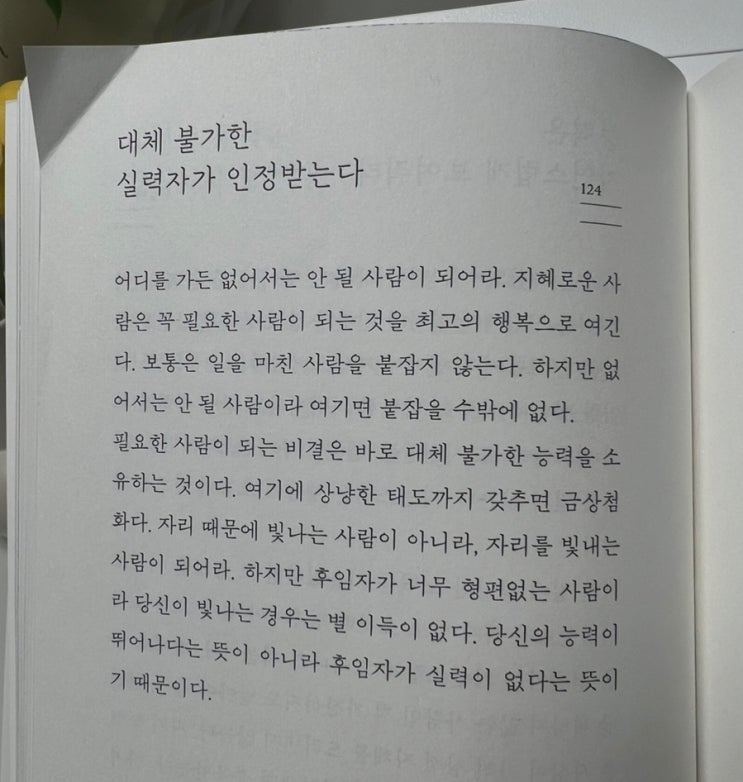 대체 불가한
실력자가 인정받는다
124
어디를 가든 없어서는 안 될 사람이 되어라. 지혜로운 사
람은 꼭 필요한 사람이 되는 것을 최고의 행복으로 여긴
다. 보통은 일을 마친 사람을 붙잡지 않는다. 하지만 없
어서는 안 될 사람이라 여기면 붙잡을 수밖에 없다.
필요한 사람이 되는 비결은 바로 대체 불가한 능력을 소
유하는 것이다. 여기에 상냥한 태도까지 갖추면 금상첨
화다. 자리 때문에 빛나는 사람이 아니라, 자리를 빛내는
사람이 되어라. 하지만 후임자가 너무 형편없는 사람이
라 당신이 빛나는 경우는 별 이득이 없다. 당신의 능력이
뛰어나다는 뜻이 아니라 후임자가 실력이 없다는 뜻이
기 때문이다.